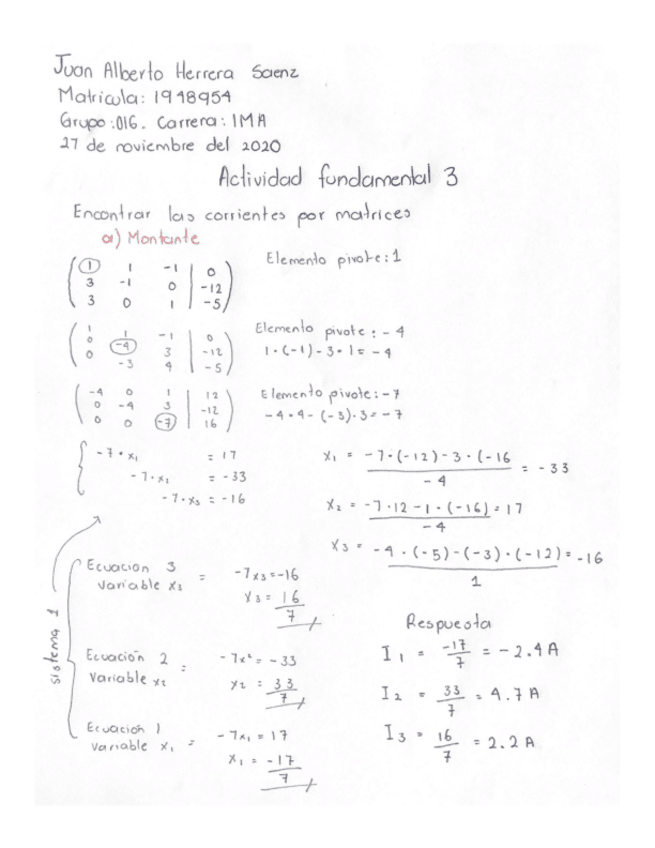 Juan Alberto Herrera Saenz
Matricula: 1948954
Grupo: 016. Carrera: IMA
27 de noviembre del 2020
Actividad fundamental 3
Encontrar las corrientes por matrices
a) Montante
1 1 -1 | 0
3 -1 0 | -12
3 0 1 | -5
Elemento pivote: 1
1 1 -1 | 0
0 -4 3 | -12
0 -3 4 | -5
Elemento pivote: -4
1·(-1)-3·1= -4
-4 0 1 | 12
0 -4 3 | -12
0 0 -7 | 16
Elemento pivote: -7
-4·4-(-3)·3=-7
-7·x₁ = 17
-7·x₂ = -33
-7·x₃ = -16
X₁ = -7·(-12)-3·(-16 / -4 = -33
X₂ = -7·12-1·(-16) / -4 = 17
X₃ = -4·(-5)-(-3)·(-12) / 1 = -16
sistema 1
Ecuacion 3
Variable x₃ = -7x₃=-16
X₃ = 16/7
Ecuación 2
Variable x₂ = -7x²= -33
X₂ = 33/7
Ecuación 1
Variable x₁ = -7x₁ = 17
X₁ = -17/7
Respuesta
I₁ = -17/7 = -2.4 A
I₂ = 33/7 = 4.7 A
I₃ = 16/7 = 2.2 A